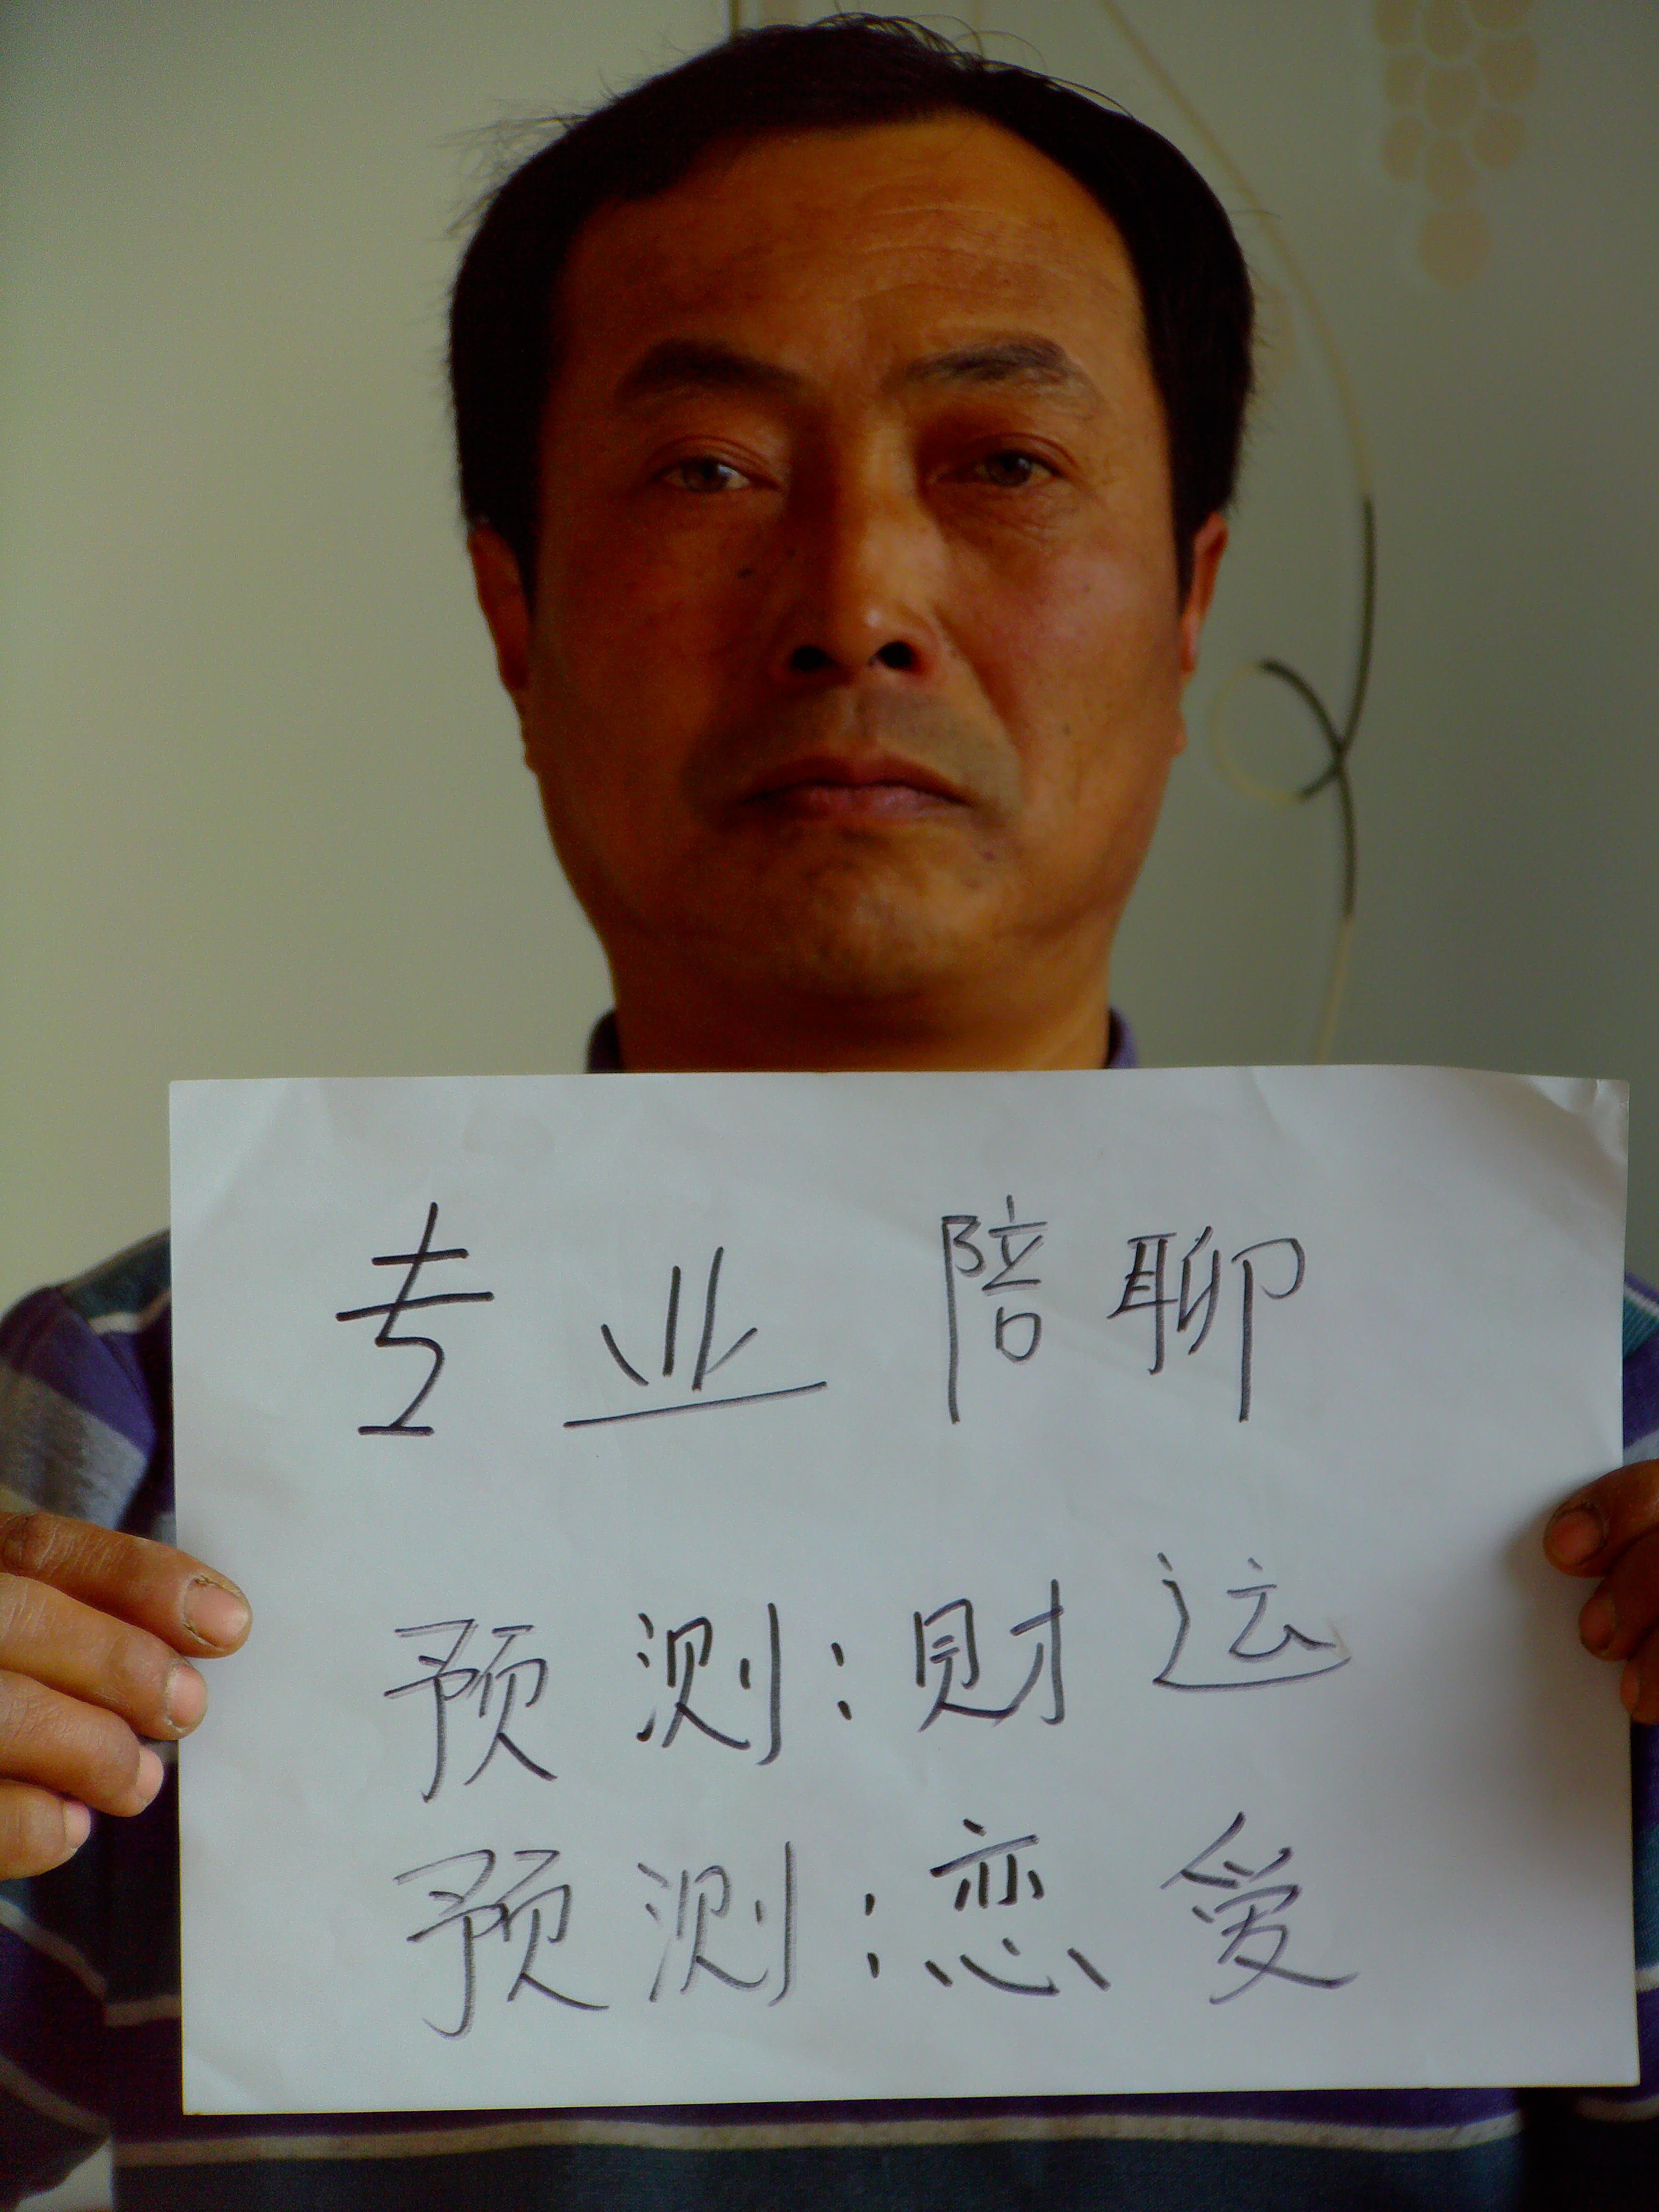 专业 陪聊
预测:财运
预测:恋爱